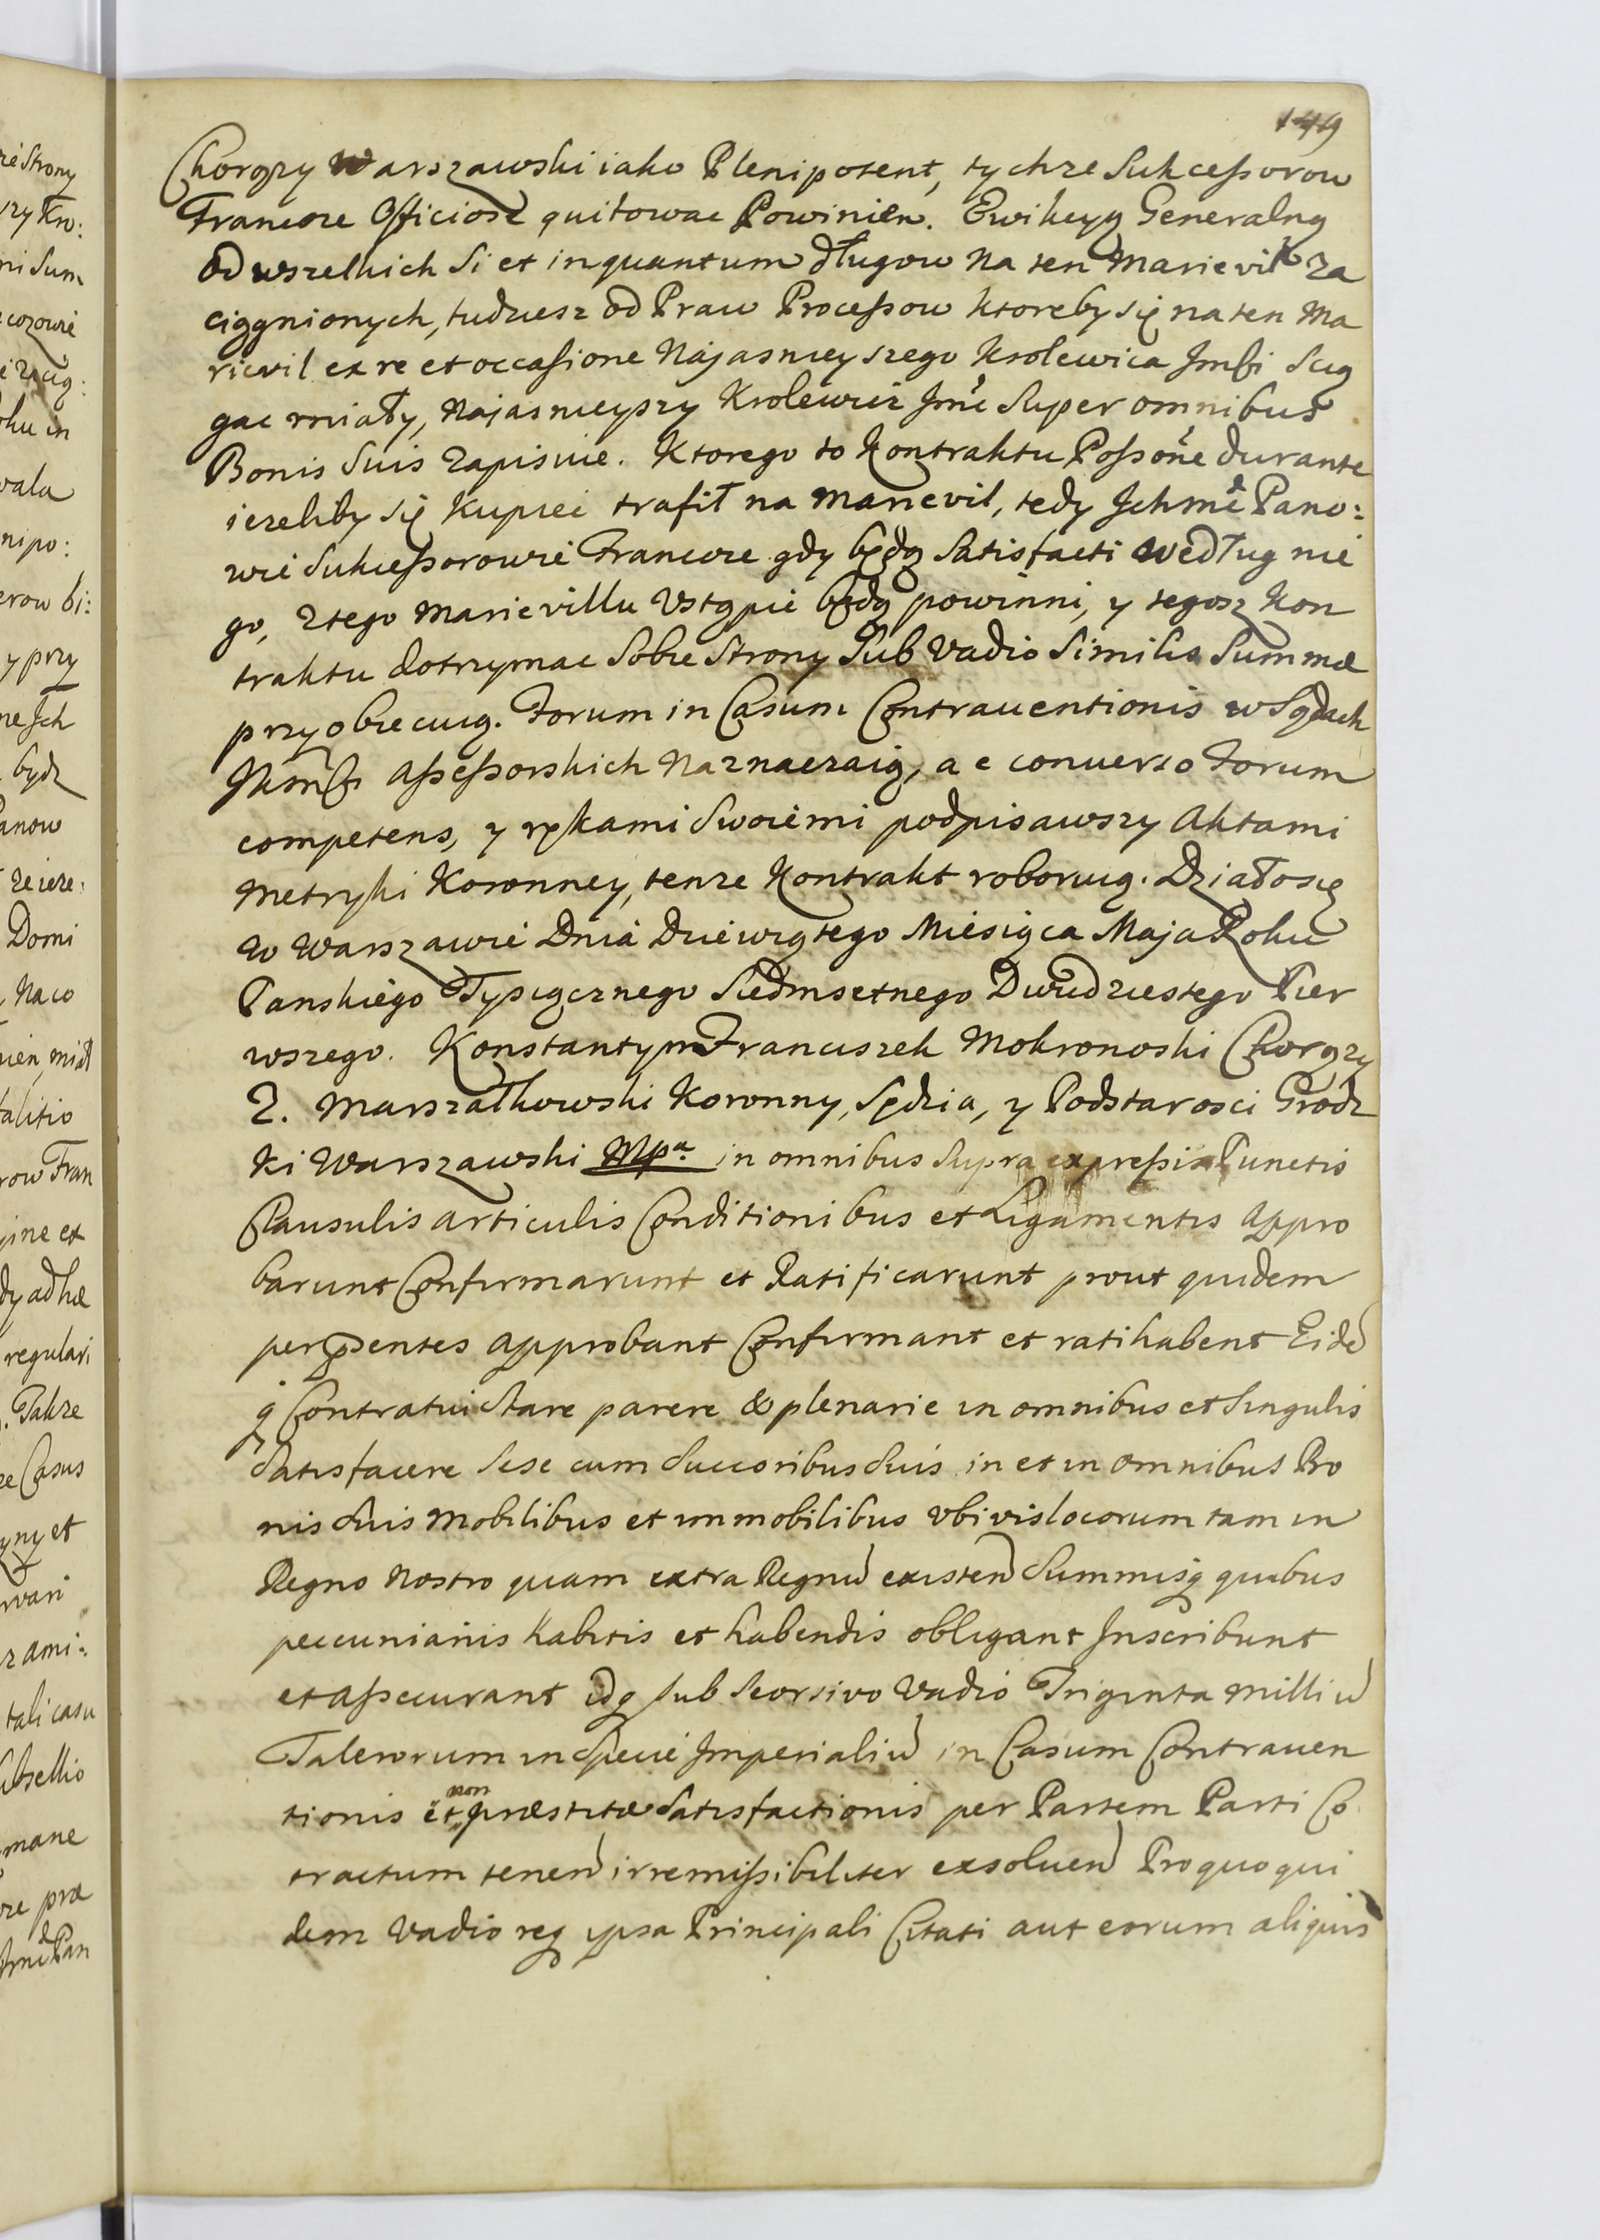 149
Chorąży Warszawski iako Plenipotent, tychże Sukcessorow
Francoze Officiose quitowac Powinien. Ewikcyą Generalną
od wszelkich Si et in quantum długow na ten Marievil za
ciągnionych, tudziesz od Praw Processow ktoreby się na ten Ma
rievil ex re et occasione Najasnieyszego Krolewica Jmsci Scią
gac miały, Najasnieyszy Krolewic Jmć Super omnibus
Bonis Suis Zapisuie. Ktorego to Kontraktu Possone durante
iezeliby się Kupiec trafił na Marievil, tedy Ichmć Pano:
wie Sukcessorowie Francoze gdy będą Satisfacti według nie
go, z tego Marievillu Ustąpić będą powinni, y tegosz Kon
traktu dotrzymac Sobie Strony Sub Vadio Similis Summæ
przyobiecuią. Forum in Casum Contrauentionis w Sądach
Jkmsci Assessorskich naznaczaią, a e conuerso Forum
competens, y rękami Swoiemi podpisawszy Aktami
Metryki Koronney, tenze Kontrakt roboruią. Działosię
w Warszawie Dnia Dziewiątego Miesiąca Maja Roku
Panskiego Tysiącznego Siedmsetnego Dwudziestego Pier
wszego. Konstantyn Franciszek Mokronoski Chorąży
Z. Marszałkowski Koronny, Sędzia, y Podstarosci Grodz
ki Warszawski Mpa. in omnibus Supra expressis Punctis
Clausulis articulis Conditionibus et Ligamentis appro
barunt Confirmarunt et Ratificarunt prout quidem
per psentes approbant Confirmant et ratihabent Eidē
q Contratui Stare parere & plenarie in omnibus et Singulis
Satisfacere Sese cum Succoribus Suis in et in omnibus Bo
nis Suis Mobilibus et immobilibus Ubivis locorum tam in
Regno Nostro quam extra Regnū existen Summisq quibus
peccuniariis habitis et habendis obligant Inscribunt
et assecurant idq sub Seorsivo Vadio Triginta Milliū
Talerorum in Specie Imperialiū in Casum Contrauen
tionis et non præstitæ Satisfactionis per Partem Parti Co
tractum tenen irremissibiliter exsoluen Pro quo qui
dem Vadio req ipsa Principali Citati aut eorum aliquis